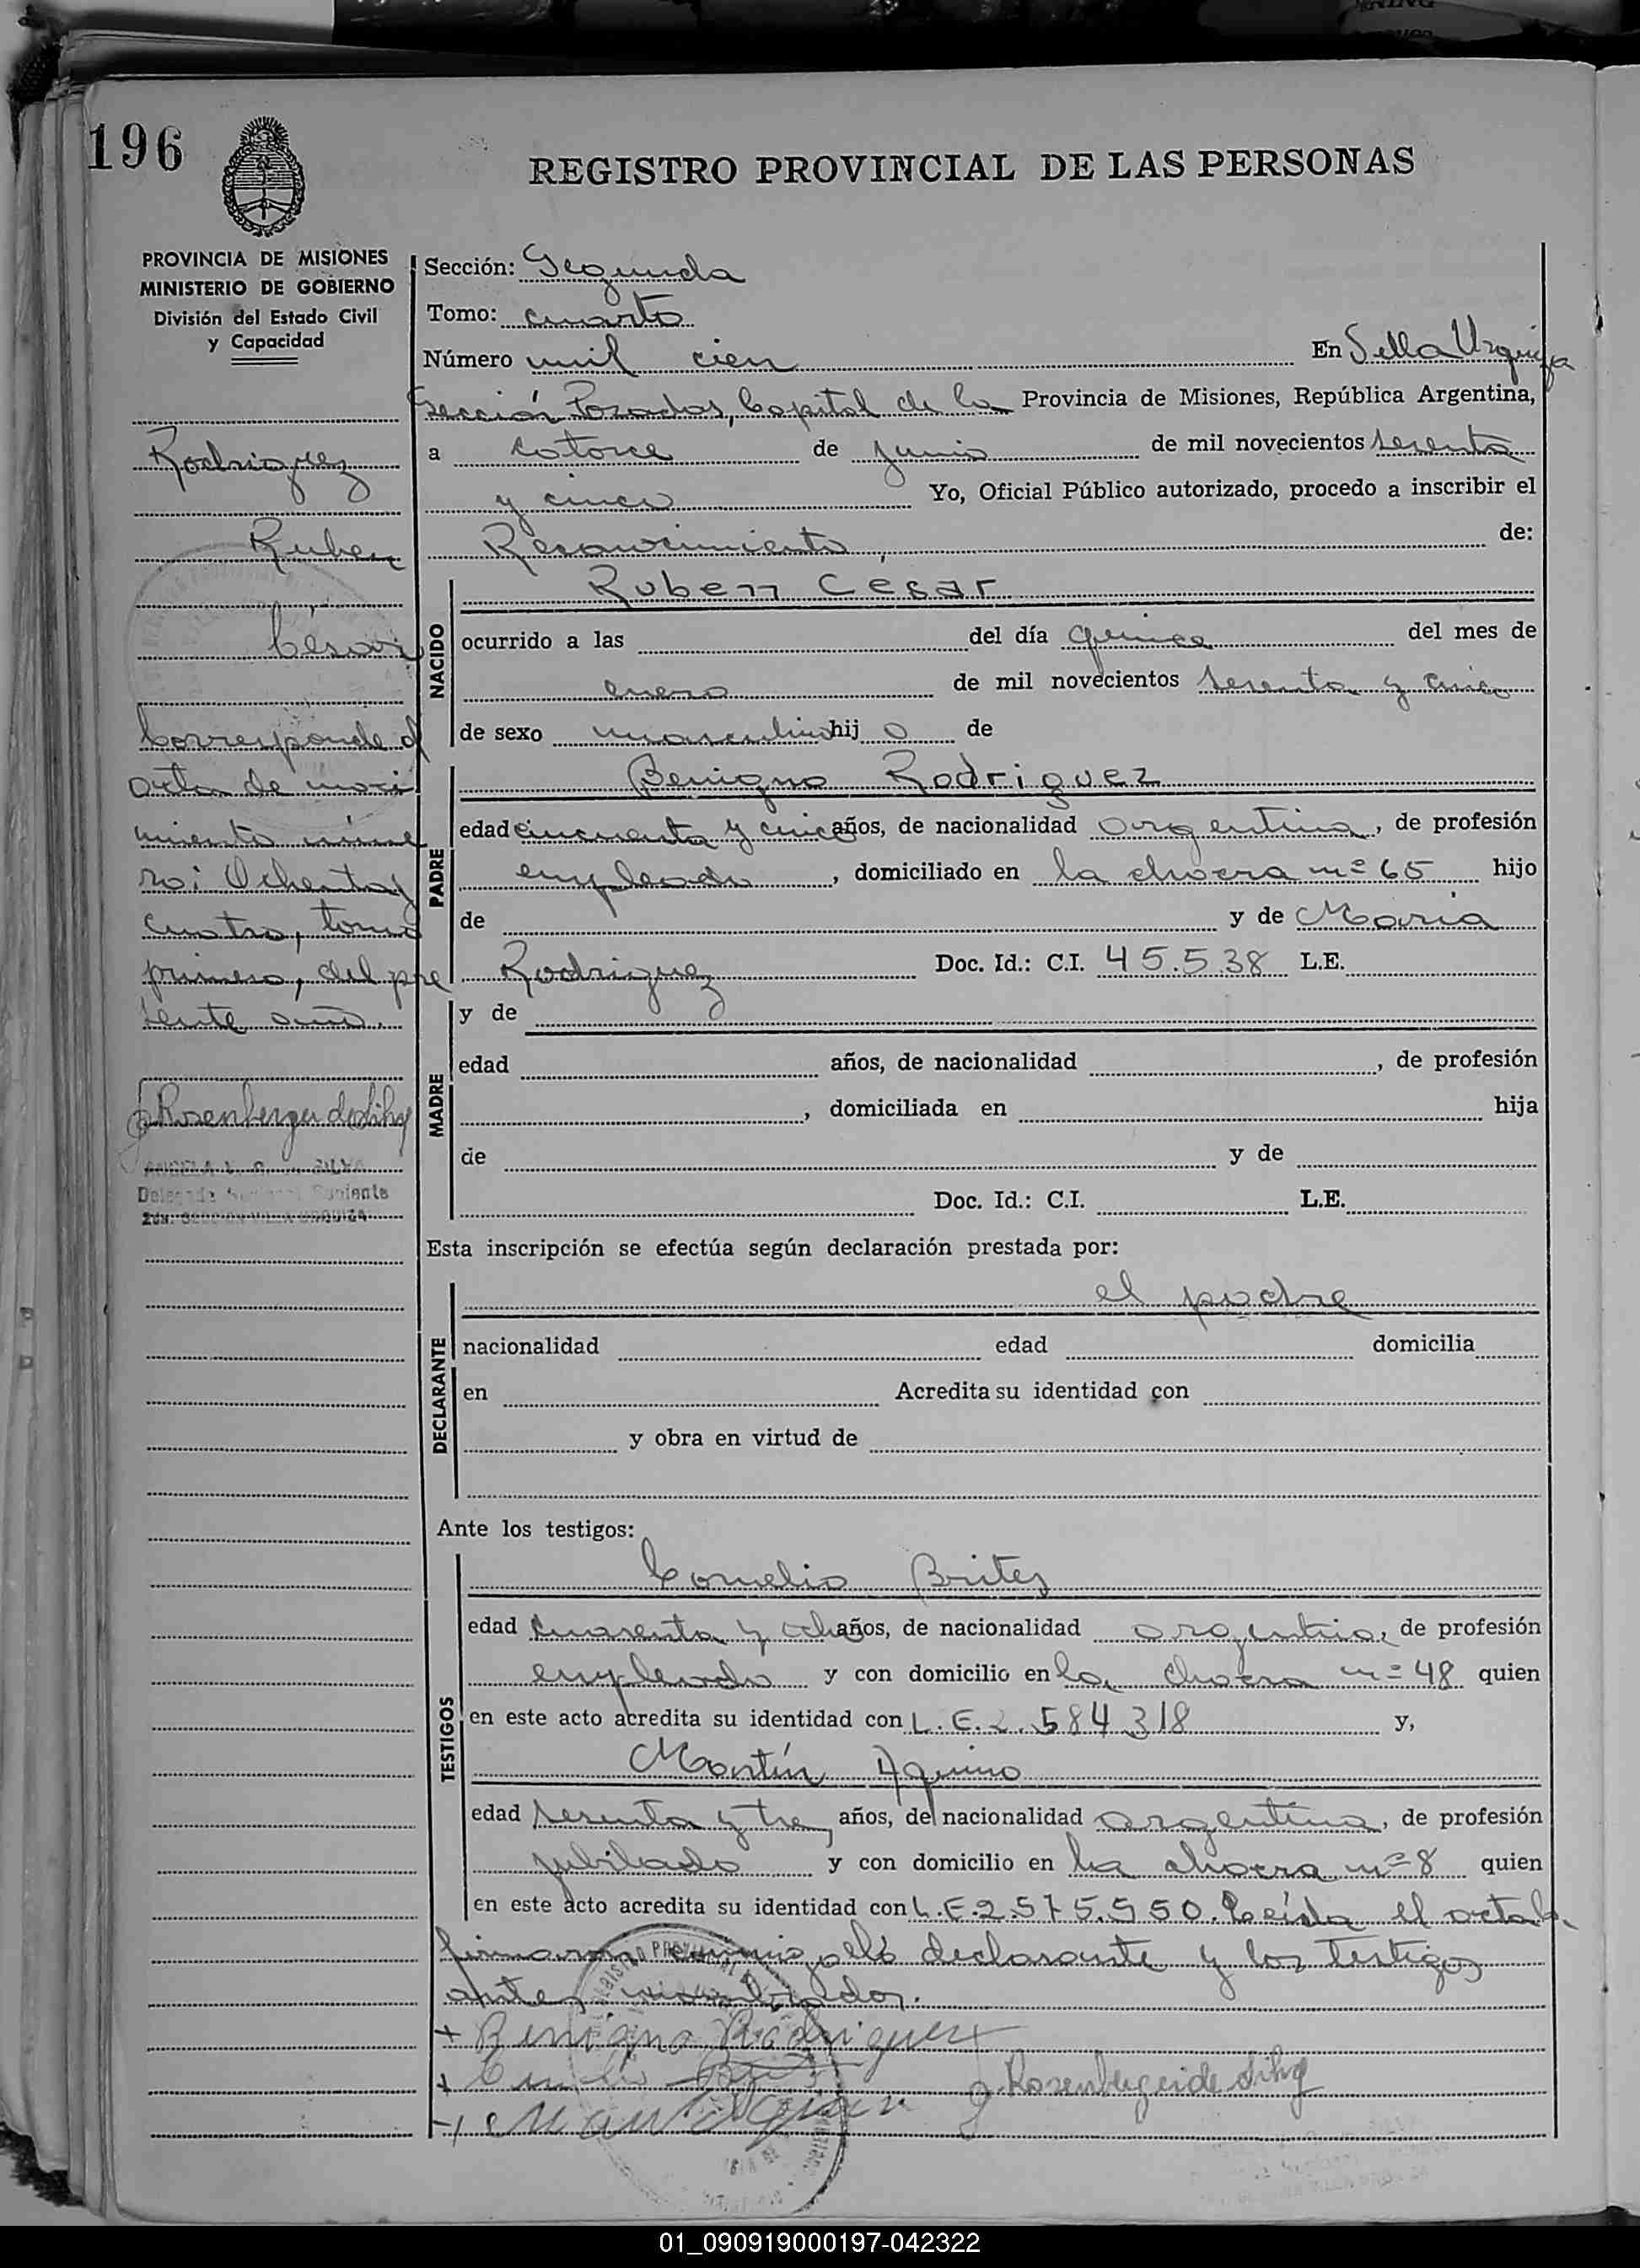 196
REGISTRO PROVINCIAL DE LAS PERSONAS
PROVINCIA DE MISIONES
MINISTERIO DE GOBIERNO
División del Estado Civil
y Capacidad
Rodriguez
Ruben
César
Corresponde al
acta de naci
miento núme
ro: Ochenta y
cuatro, tomo
primero, del pre
sente año.
Rosenberger de Silva
ANGELA DE SILVA
Delegada Suplente
Sección: Segunda
Tomo: cuarto
Número mil cien En Villa Urquiza
Sección Posadas, Capital de la Provincia de Misiones, República Argentina,
a catorce de junio de mil novecientos sesenta
y cinco Yo, Oficial Público autorizado, procedo a inscribir el
Reconocimiento, de:
NACIDO
Ruben César
ocurrido a las del día quince del mes de
enero de mil novecientos sesenta y cinco
de sexo masculino hij o de
PADRE
Benigno Rodriguez
edad cincuenta y cinco años, de nacionalidad argentina, de profesión
empleado, domiciliado en la chacra nº 65 hijo
de y de María
Rodriguez Doc. Id.: C.I. 45.538 L.E.
MADRE
y de
edad años, de nacionalidad , de profesión
, domiciliada en hija
de y de
Doc. Id.: C.I. L.E.
Esta inscripción se efectúa según declaración prestada por:
DECLARANTE
el padre
nacionalidad edad domicilia
en Acredita su identidad con
y obra en virtud de
Ante los testigos:
TESTIGOS
Cornelio Britez
edad cuarenta y ocho años, de nacionalidad argentina, de profesión
empleado y con domicilio en la chacra nº 48 quien
en este acto acredita su identidad con L.E.2.584318 y,
Martín Aquino
edad sesenta y tres años, de nacionalidad argentina, de profesión
jubilado y con domicilio en la chacra nº 8 quien
en este acto acredita su identidad con L.E.2.575.550. Leída el acta la
firmaron conmigo, el declarante y los testigos
antes nombrados.
+ Benigno Rodriguez +
+
Rosenberger de Silva
01_090919000197-042322